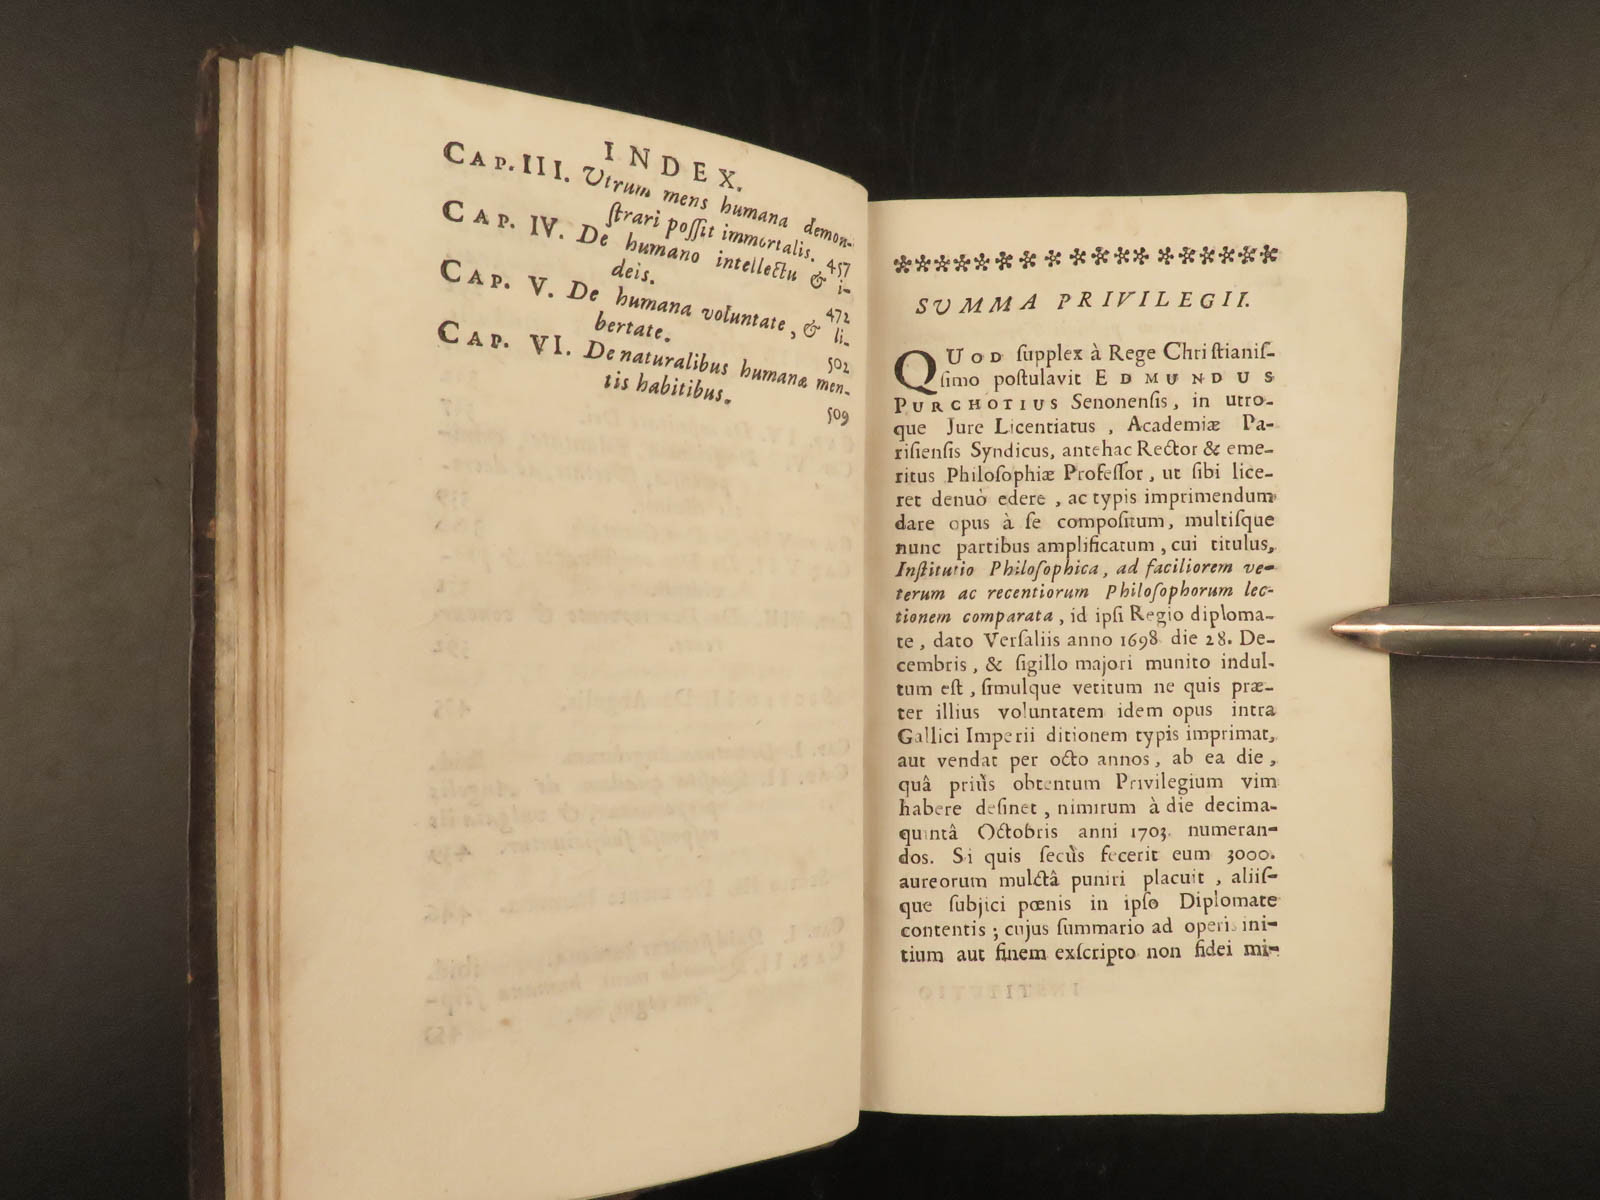 INDEX.
CAP. III. Utrum mens humana demon-
ſtrari poſſit immortalis. 457
CAP. IV. De humano intellectu & i-
deis. 472
CAP. V. De humana voluntate, & li-
bertate. 502
CAP. VI. De naturalibus humanæ men-
tis habitibus. 509
SUMMA PRIVILEGII.
QUOD ſupplex à Rege Chriſtianiſ-
ſimo poſtulavit EDMUNDUS
PURCHOTIUS Senonenſis, in utro-
que Jure Licentiatus, Academiæ Pa-
riſienſis Syndicus, antehac Rector & eme-
ritus Philoſophiæ Profeſſor, ut ſibi lice-
ret denuò edere, ac typis imprimendum
dare opus à ſe compoſitum, multiſque
nunc partibus amplificatum, cui titulus,
Inſtitutio Philoſophica, ad faciliorem ve-
terum ac recentiorum Philoſophorum lec-
tionem comparata, id ipſi Regio diploma-
te, dato Verſaliis anno 1698 die 28. De-
cembris, & ſigillo majori munito indul-
tum eſt, ſimulque vetitum ne quis præ-
ter illius voluntatem idem opus intra
Gallici Imperii ditionem typis imprimat,
aut vendat per octo annos, ab ea die,
quâ priùs obtentum Privilegium vim
habere deſinet, nimirum à die decima-
quintâ Octobris anni 1703. numeran-
dos. Si quis ſecùs fecerit eum 3000.
aureorum mulctâ puniri placuit, aliiſ-
que ſubjici pœnis in ipſo Diplomate
contentis; cujus ſummario ad operis ini-
tium aut finem exſcripto non fidei mi-